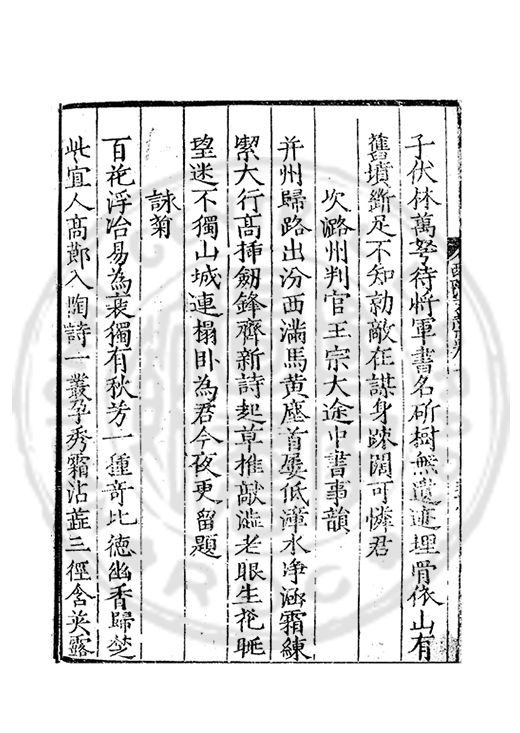 子伏林萬弩待將軍書名斫樹無遺迹埋骨依山有
舊墳斷足不知勍敵在謀身疎闊可憐君
次潞州判官王宗大途中書事韻
并州歸路出汾西滿馬黃塵首屢低漳水净涵霜練
潔大行高揷劒鋒齊新詩起草推敲澁老眼生花眺
望迷不獨山城連榻卧為君今夜更留題
詠菊
百花浮冶易為衰獨有秋芳一種奇比德幽香歸楚
此宜人高節入陶詩一叢孕秀霜沾蕋三徑含英露